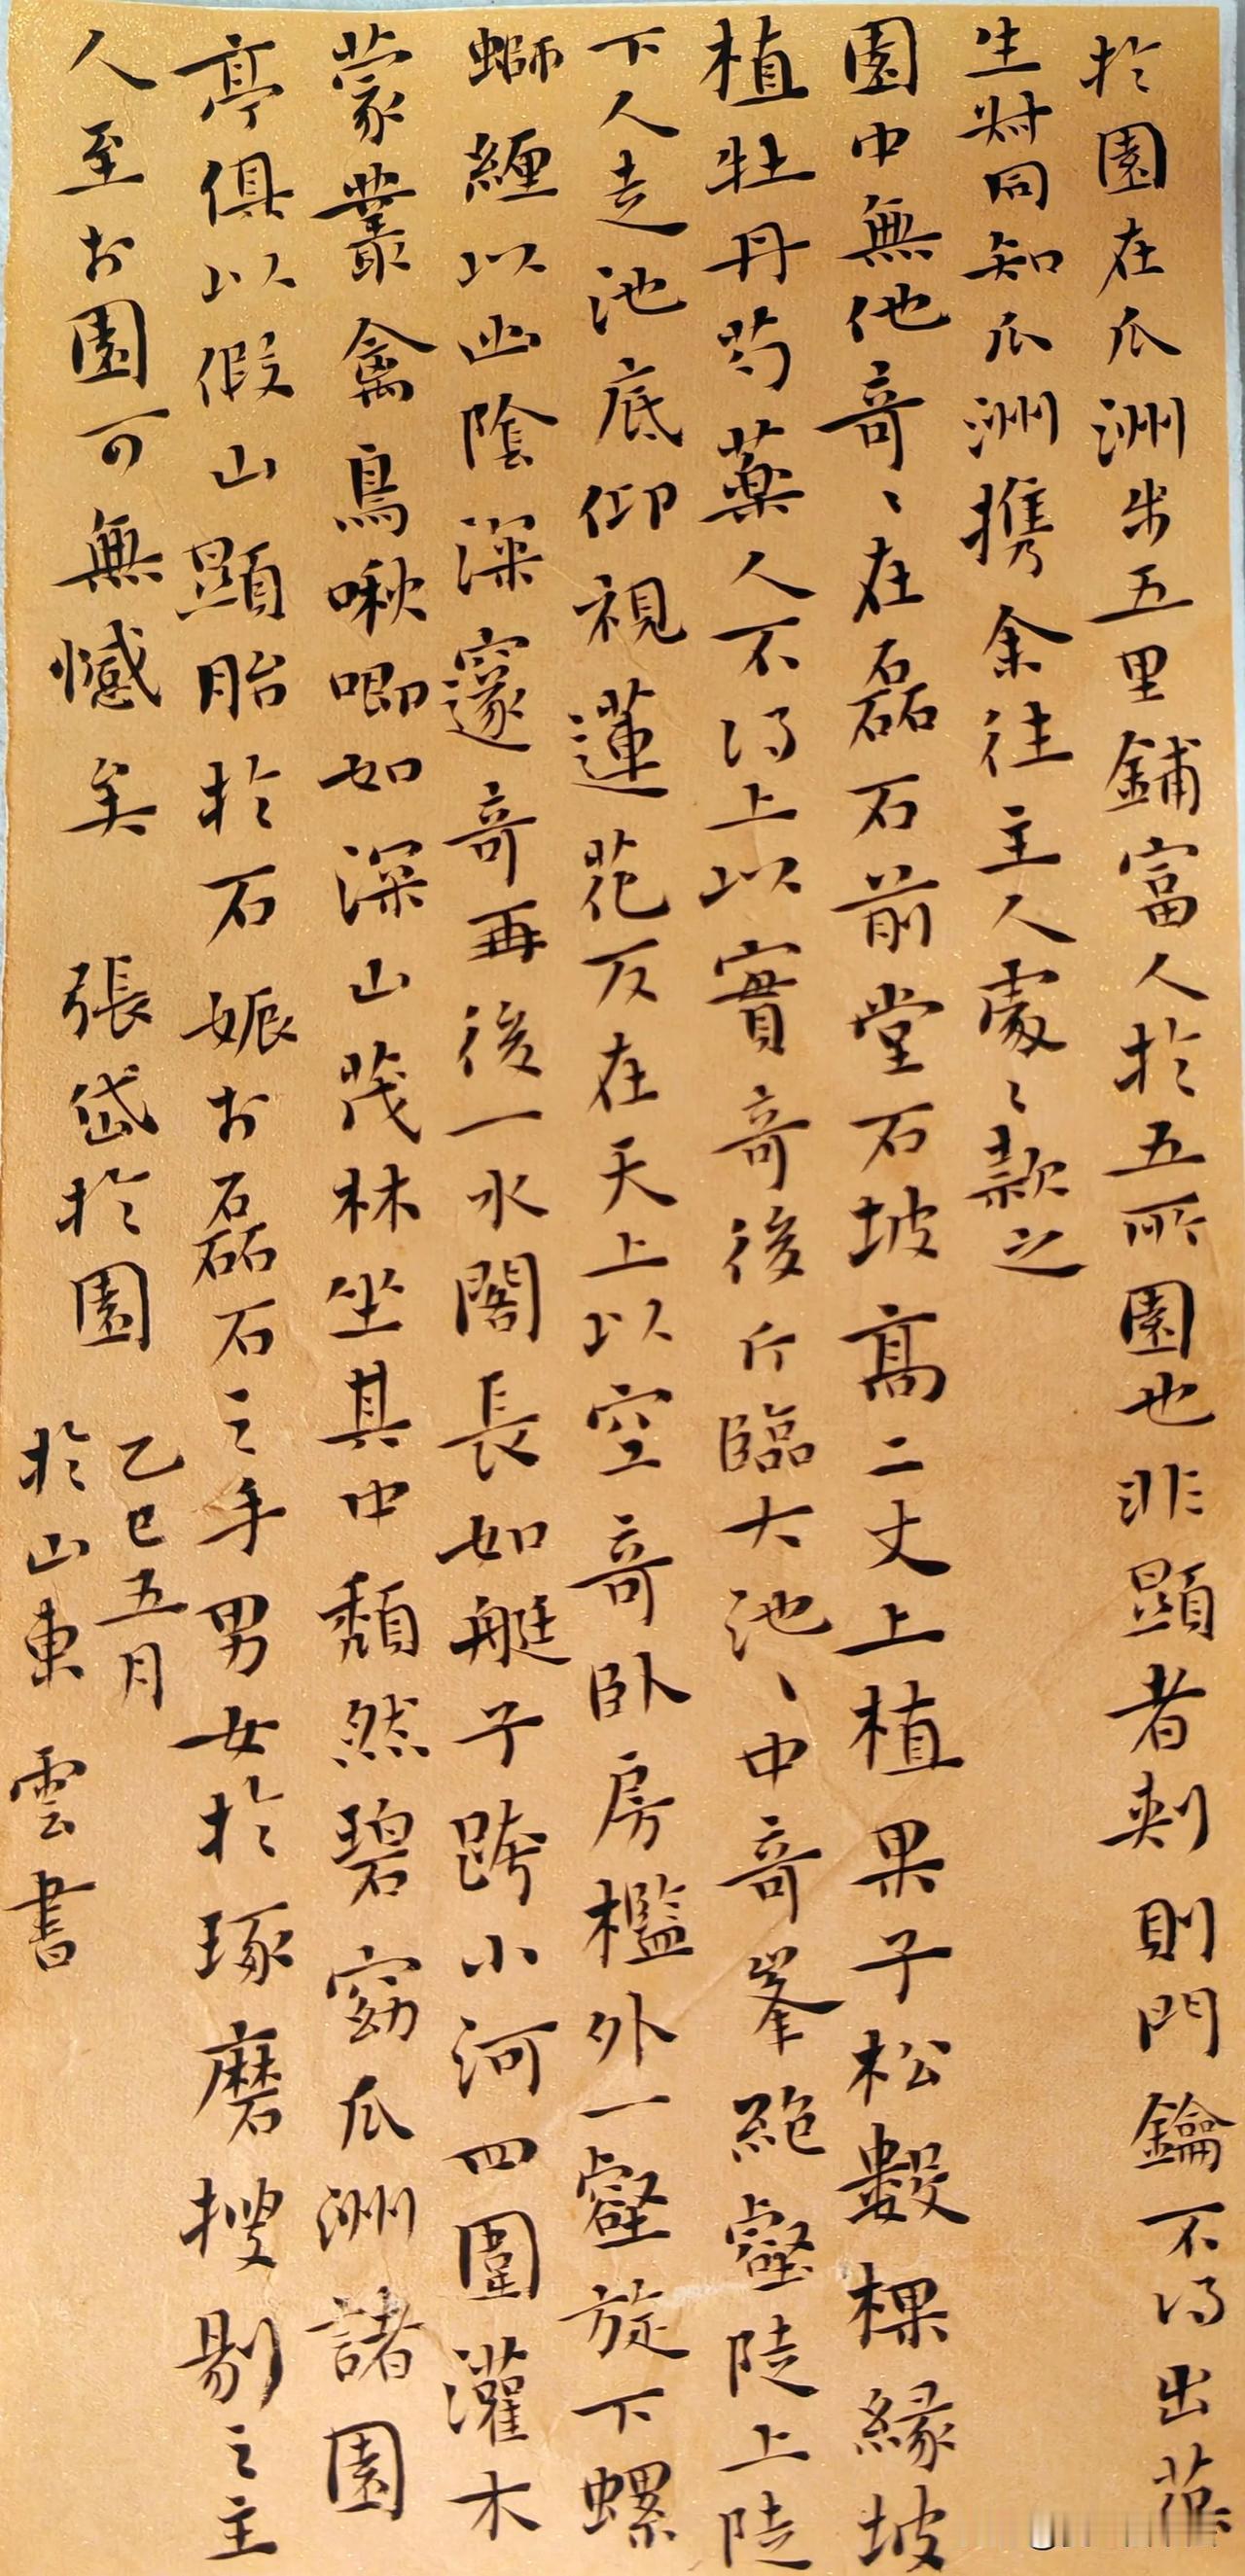 於園在瓜洲步五里鋪富人於五所園也非顯者刺則門鑰不得出葆
生叔同知瓜洲攜余往主人處〻款之
園中無他奇〻在磊石前堂石坡高二丈上植果子松數棵緣坡
植牡丹芍藥人不得上以實奇後厅臨大池〻中奇峯絕壑陡上陡
下人走池底仰視蓮花反在天上以空奇臥房檻外一壑旋下螺
螄纏以幽陰深邃奇再後一水閣長如艇子跨小河四圍灌木
蒙叢禽鳥啾唧如深山茂林坐其中頹然碧窈瓜洲諸園
亭俱以假山顯胎於石娠於磊石之手男女於琢磨搜剔之主
人至於園可無憾矣 張岱於園
乙巳五月
於山東 雲書